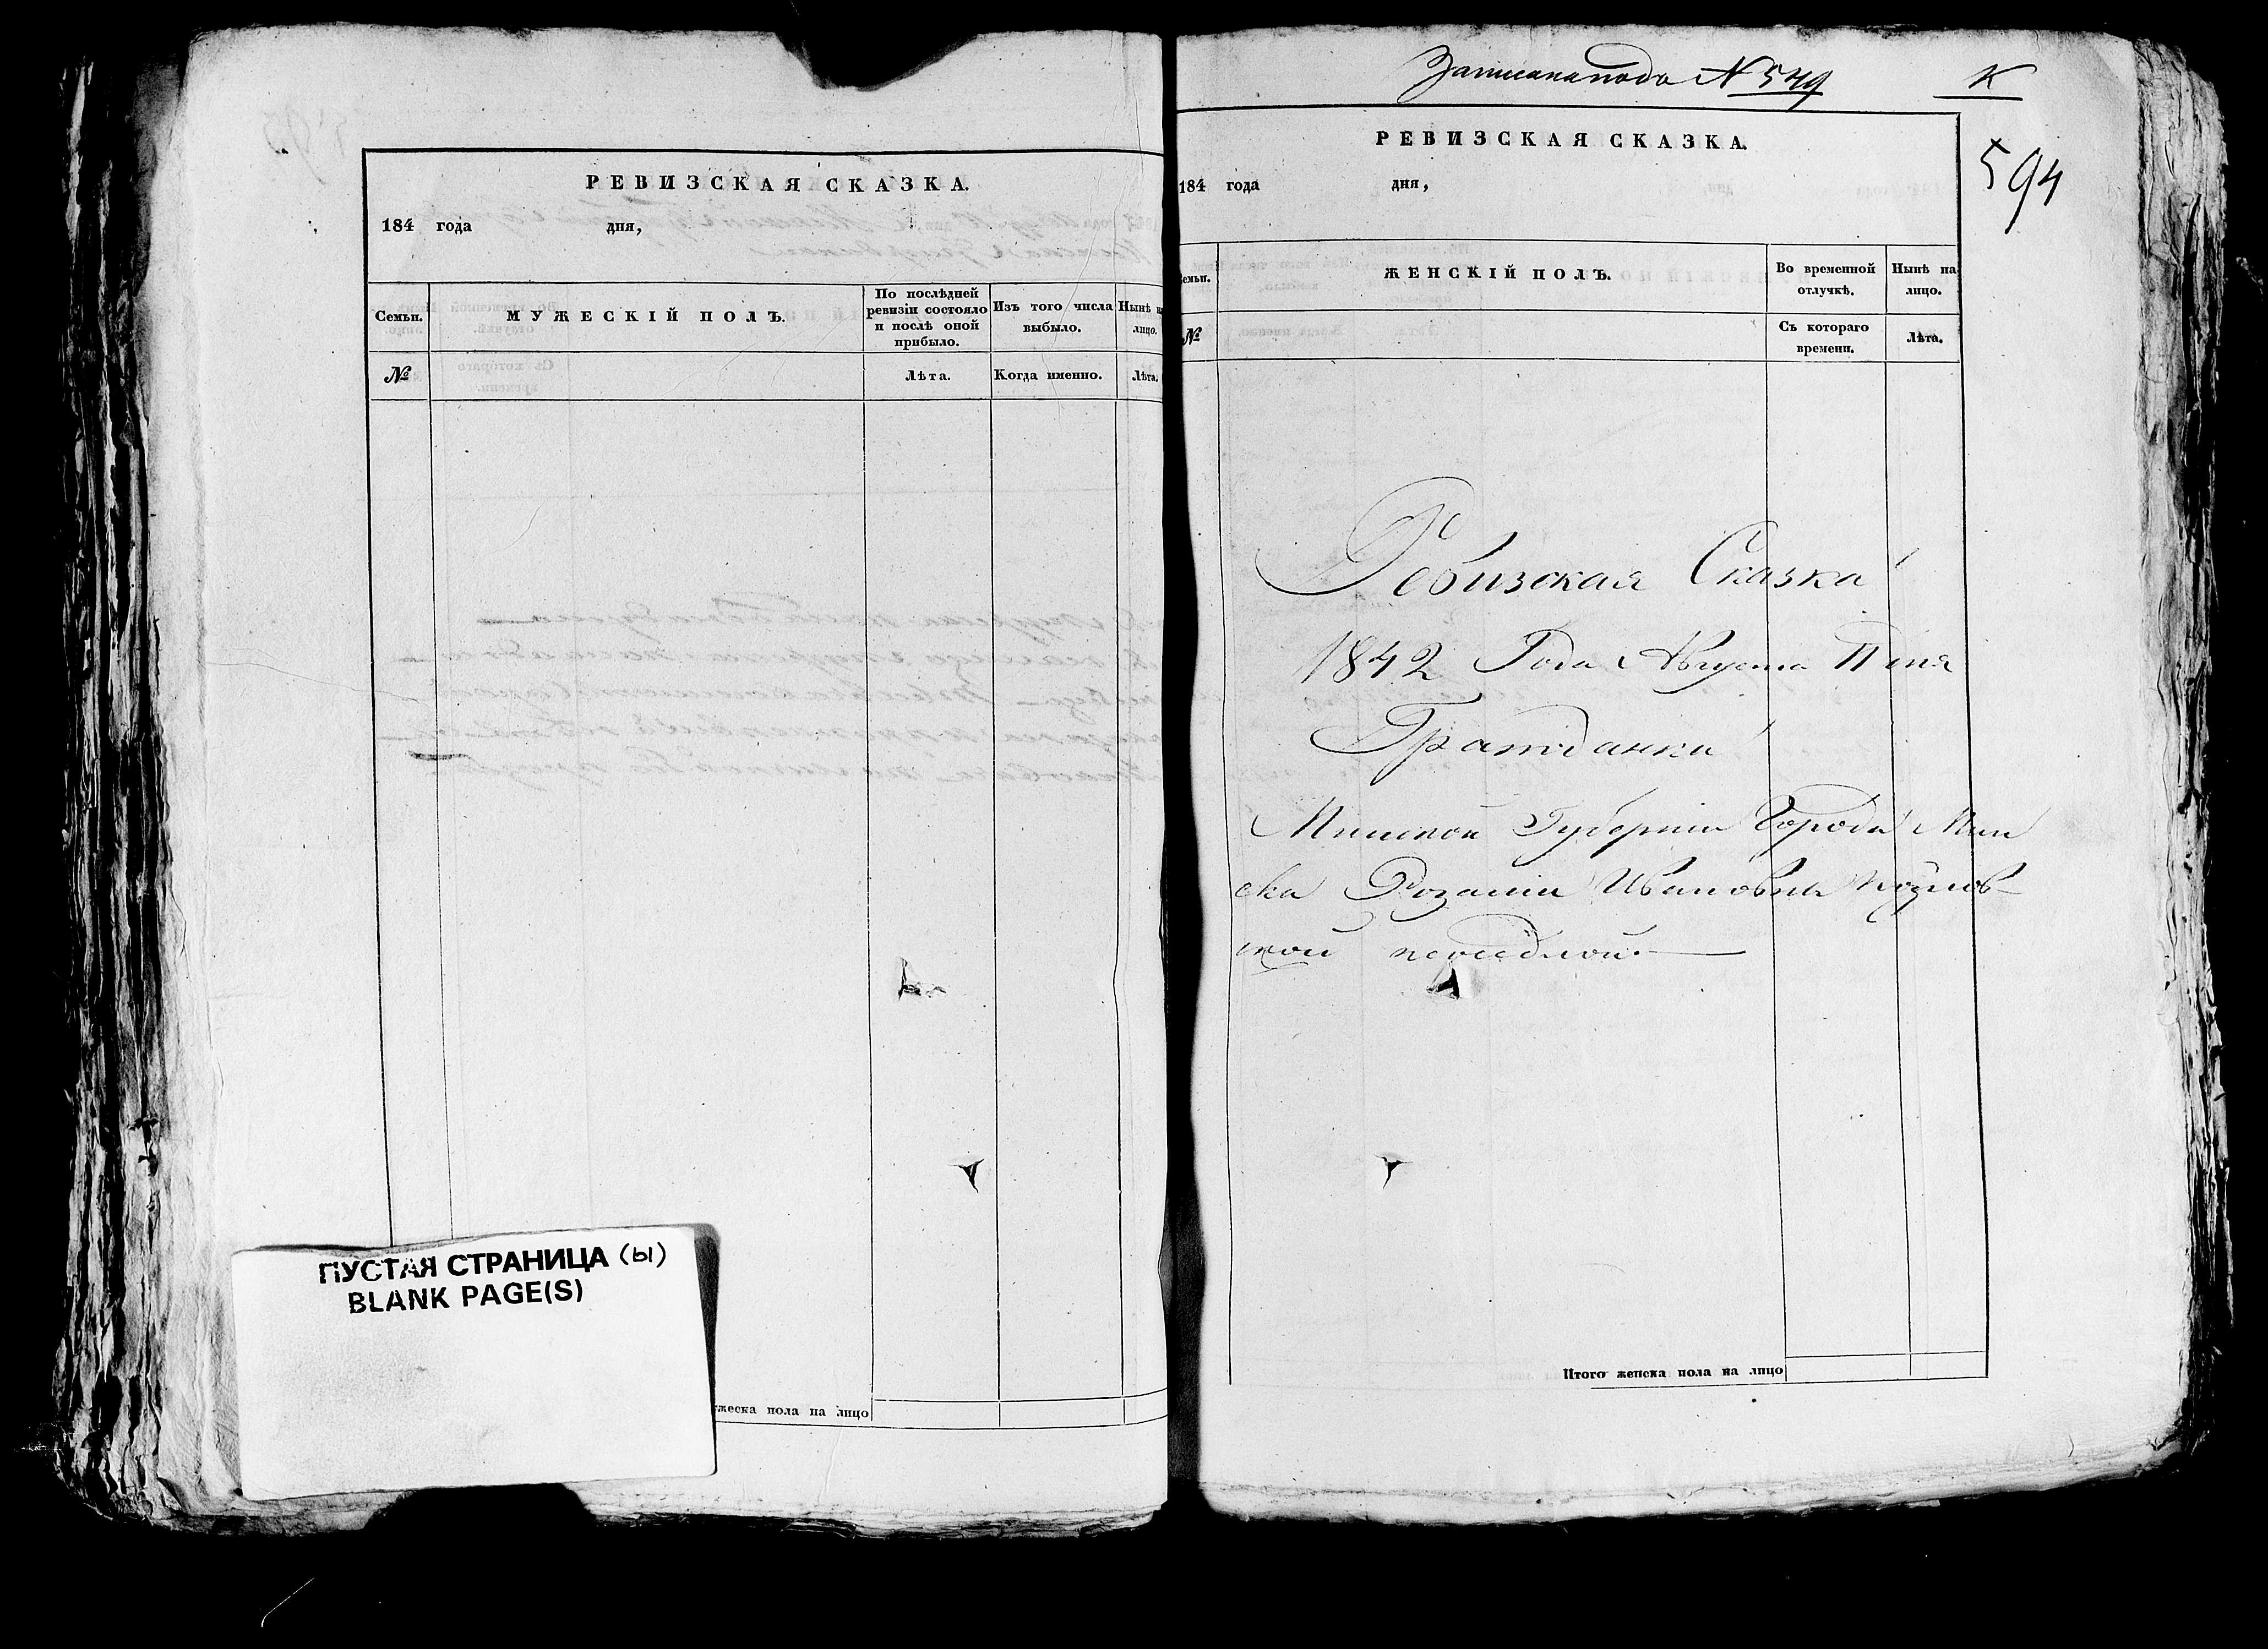 РЕВИЗСКАЯ СКАЗКА.
184 года дня,
Семьи. МУЖЕСКІЙ ПОЛЪ. По послѣдней ревизіи состояло и послѣ оной прибыло. Изъ того числа выбыло. Нынѣ лицо.
№ Лѣта. Когда именно. Лѣта.
ПУСТАЯ СТРАНИЦА (ы)
BLANK PAGE(S)
жеска пола на лицо
Записана подъ № 549 К
РЕВИЗСКАЯ СКАЗКА.
594
184 года дня,
Семьи. ЖЕНСКІЙ ПОЛЪ. Во временной отлучкѣ. Нынѣ на лицо.
№ Съ котораго времени. Лѣта.
Ревизская Сказка
1842 Года Августа дня
Гражданки
Минской Губерніи Города Мин
ска Розаліи Ивановны Козлов-
ской неоседлой.
Итого женска пола на лицо